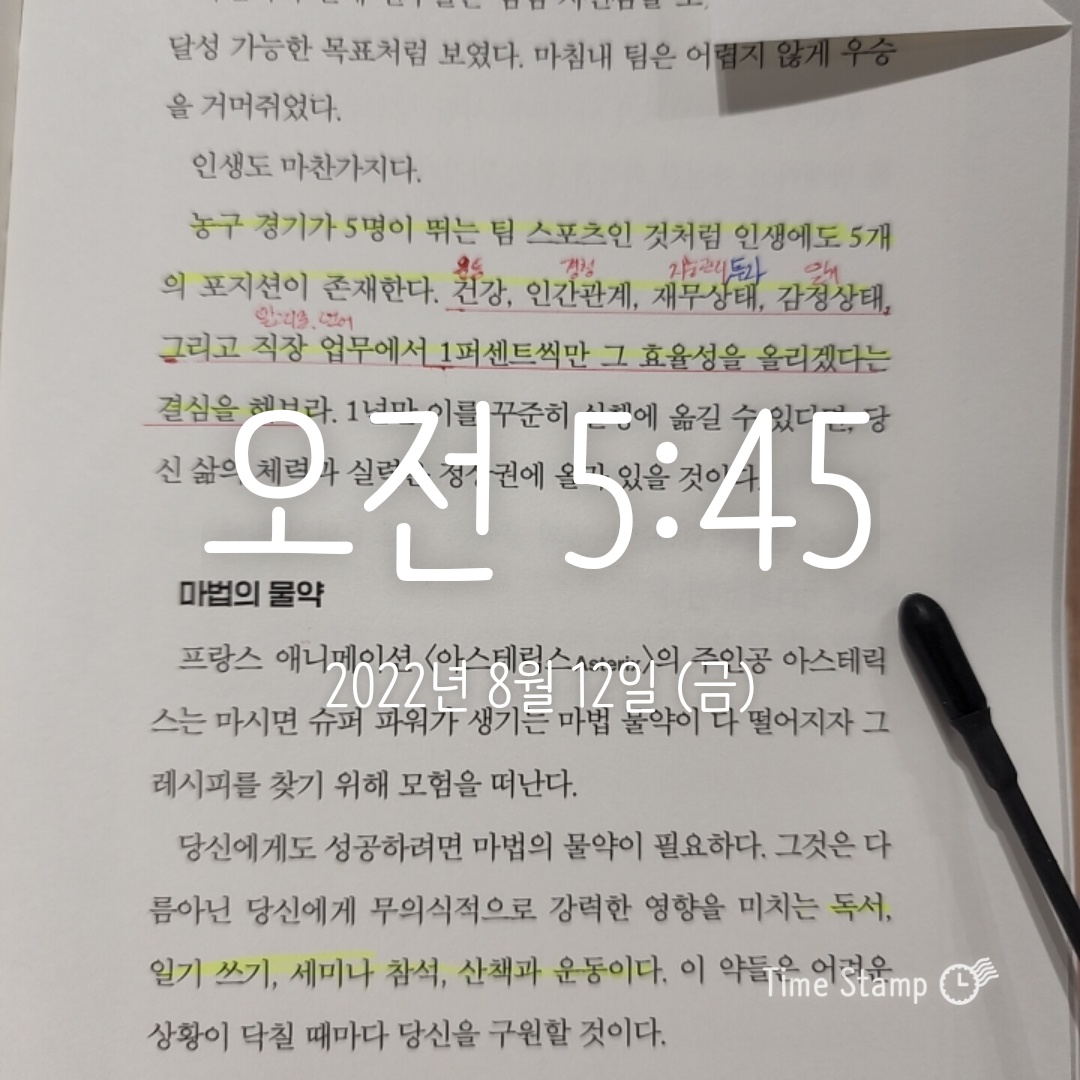 달성 가능한 목표처럼 보였다. 마침내 팀은 어렵지 않게 우승
을 거머쥐었다.
인생도 마찬가지다.
농구 경기가 5명이 뛰는 팀 스포츠인 것처럼 인생에도 5개
운동 경청 지출관리 투자 일기
의 포지션이 존재한다. 건강, 인간관계, 재무상태, 감정상태,
그리고 직장 업무에서 1퍼센트씩만 그 효율성을 올리겠다는
결심을 해보라. 1년만 이를 꾸준히 실행에 옮길 수 있다면, 당
신 삶의 체력과 실력은 정상권에 올라 있을 것이다.
오전 5:45
마법의 물약
프랑스 애니메이션 〈아스테릭스Asterix〉의 주인공 아스테릭
2022년 8월 12일 (금)
스는 마시면 슈퍼 파워가 생기는 마법 물약이 다 떨어지자 그
레시피를 찾기 위해 모험을 떠난다.
당신에게도 성공하려면 마법의 물약이 필요하다. 그것은 다
름아닌 당신에게 무의식적으로 강력한 영향을 미치는 독서,
일기 쓰기, 세미나 참석, 산책과 운동이다. 이 약들은 어려운
Time Stamp
상황이 닥칠 때마다 당신을 구원할 것이다.